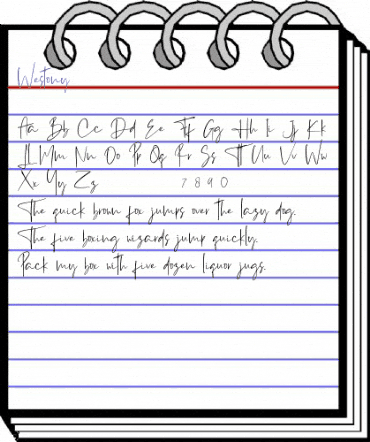 Westony
Aa Bb Cc Dd Ee Ff Gg Hh Ii Jj Kk
Ll Mm Nn Oo Pp Qq Rr Ss Tt Uu Vv Ww
Xx Yy Zz 7 8 9 0
The quick brown fox jumps over the lazy dog.
The five boxing wizards jump quickly.
Pack my box with five dozen liquor jugs.